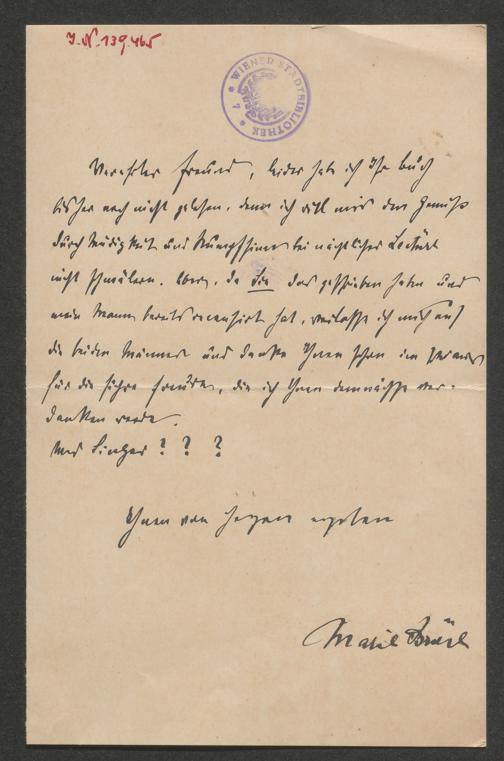 J.N. 139.465
WIENER STADTBIBLIOTHEK
Verehrter Freund, leider habe ich Ihr Buch
bisher noch nicht gelesen, denn ich will mir den Genuß
durch Müdigkeit und Stumpfsinn bei nächtlicher Lectüre
nicht schmälern. Aber, da Sie das geschrieben haben und
mein Mann bereits recensirt hat, verlasse ich mich auf
die beiden Männer und danke Ihnen schon im Voraus
für die Freude, die ich Ihnen demnächst ver-
danken werde.
? ? ?
Ihnen von Herzen ergeben
Marie